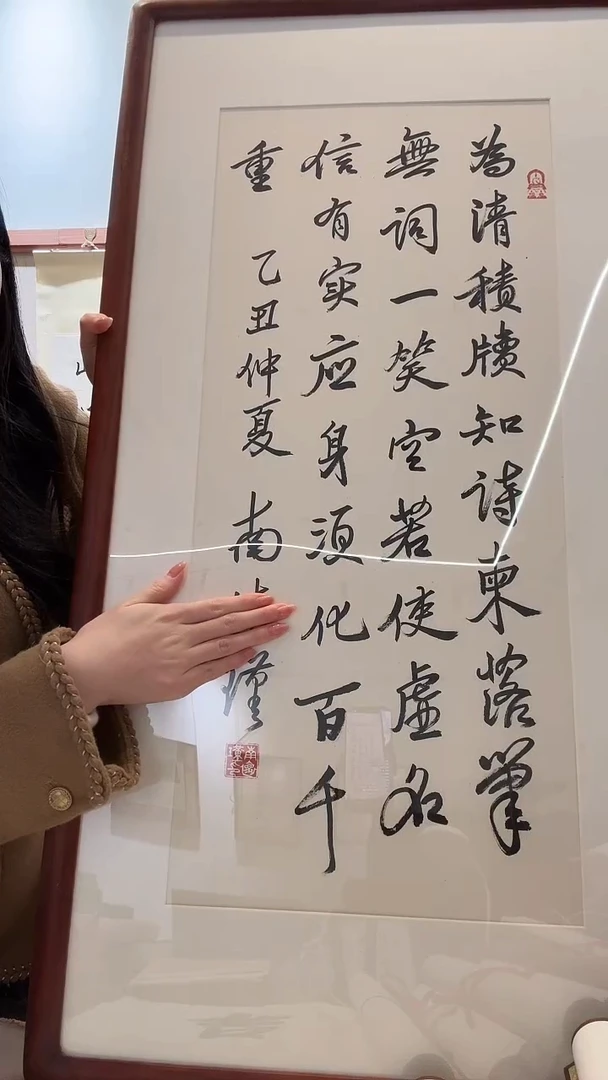 為清積牘知詩柬筆
無詞一笑空若使虛名
信有实应身須化百千
重 乙丑仲夏 南 瑾